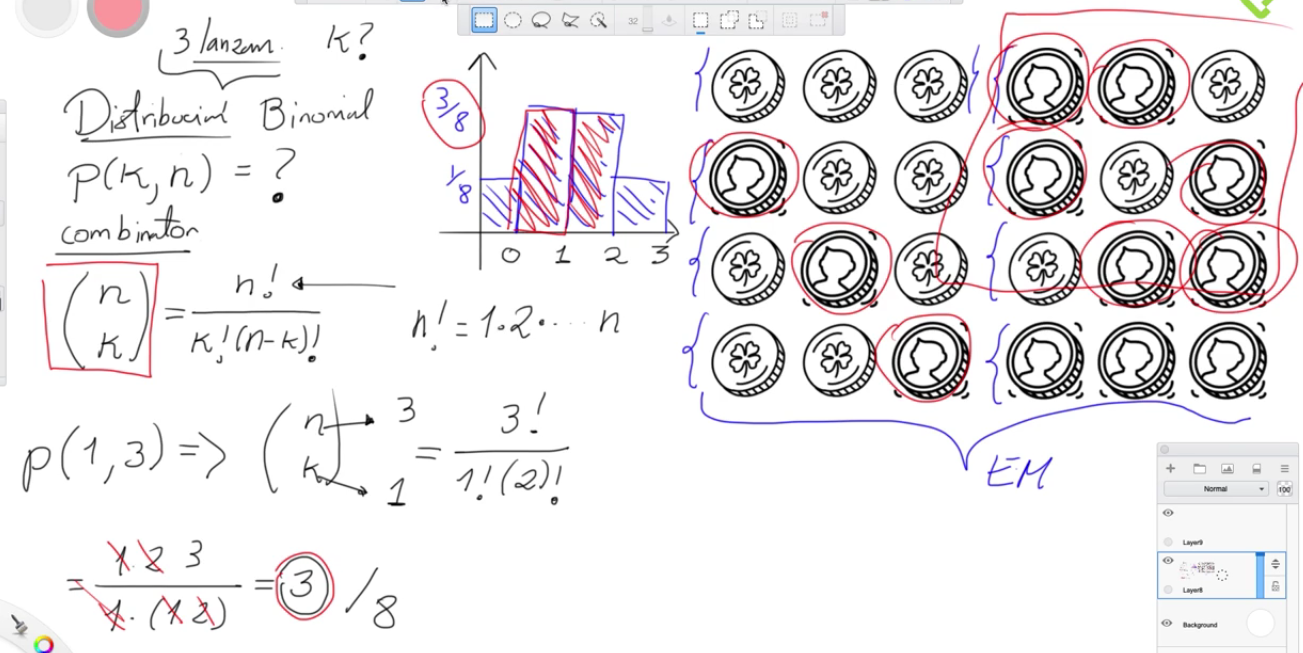 3 lanzam. K?
Distribución Binomial
P(K,n) = ?
combinaton
(n K) = n! / K!(n-K)!
n! = 1·2·...n
p(1,3) => (n K) → 3 → 1 = 3! / 1!(2)!
= 1·2 3 / 1·(1 2) = 3 / 8
3/8
1/8
0 1 2 3
EM
32
Normal
100
Layer9
Layer8
Background